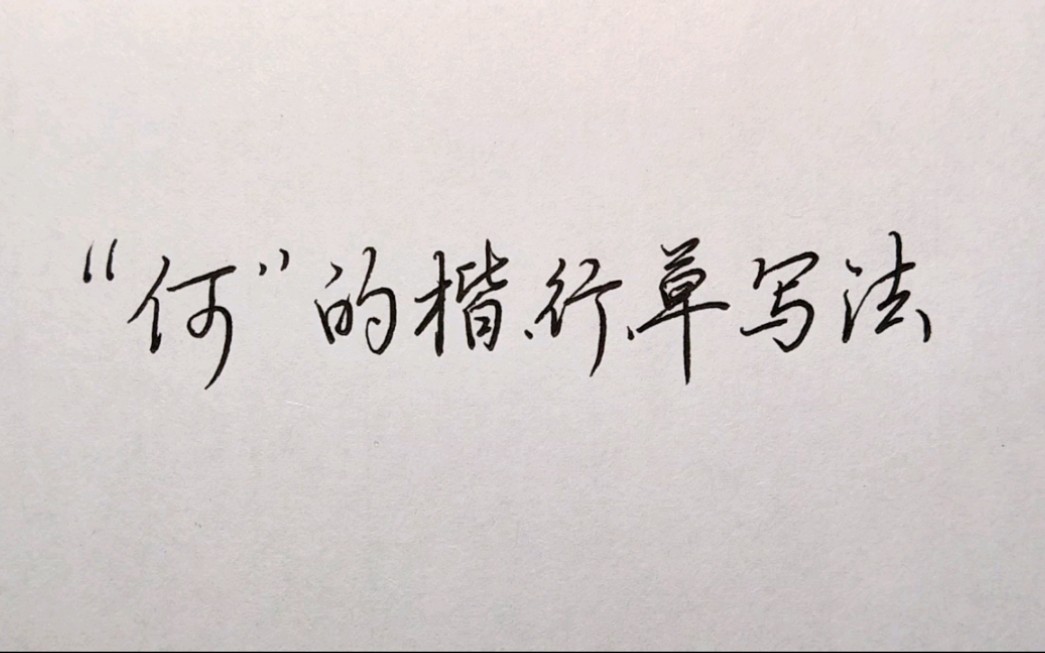 “何”的楷、行、草写法